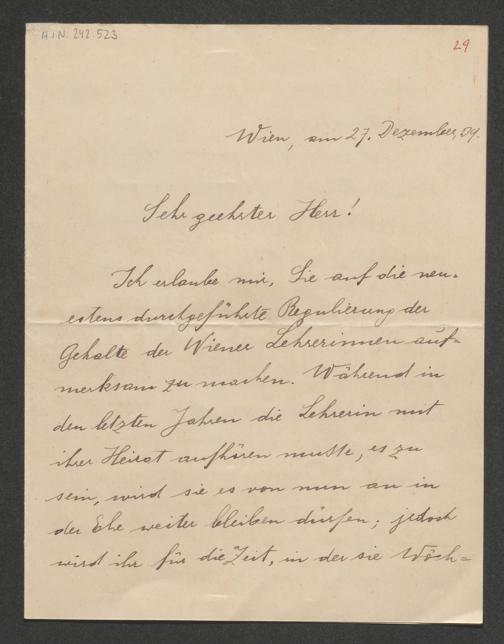 H.I.N. 242.523
29
Wien, am 27. Dezember 09.
Sehr geehrter Herr!
Ich erlaube mir, Sie auf die neu-
estens durchgeführte Regulierung der
Gehalte der Wiener Lehrerinnen auf-
merksam zu machen. Während in
den letzten Jahren die Lehrerin mit
ihrer Heirat aufhören musste, es zu
sein, wird sie es von nun an in
der Ehe weiter bleiben dürfen; jedoch
wird ihr für die Zeit, in der sie Wöch-